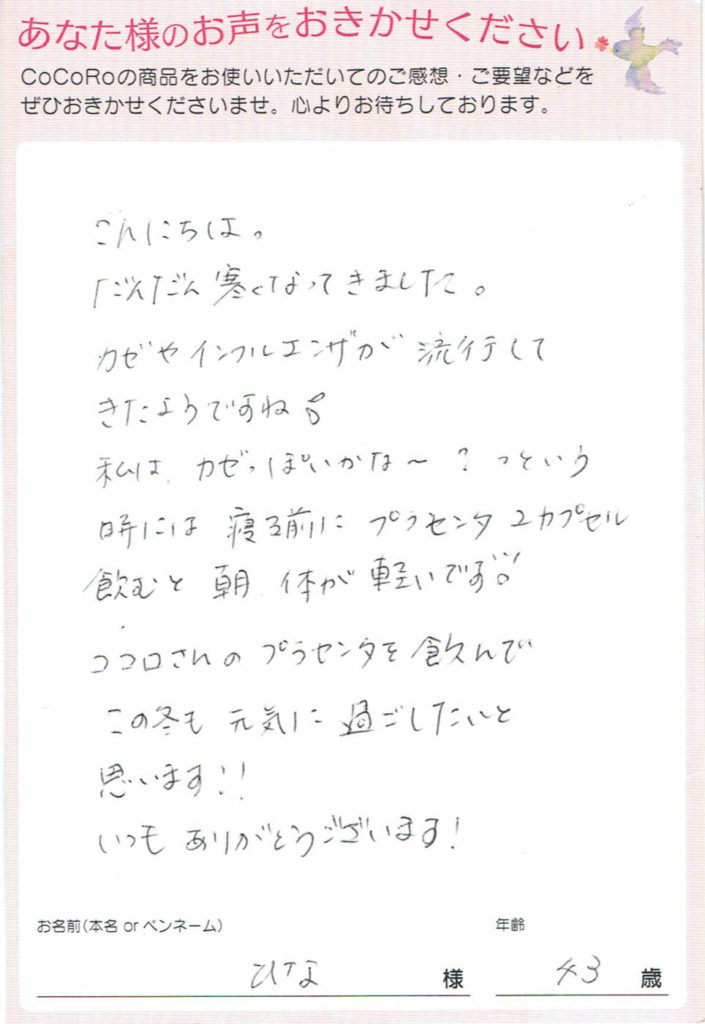 あなた様のお声をおきかせください
CoCoRoの商品をお使いいただいてのご感想・ご要望などを
ぜひおきかせくださいませ。心よりお待ちしております。
こんにちは。
だんだん寒くなってきました。
カゼやインフルエンザが流行して
きたようですね
私は、カゼっぽいかな〜？っという
時には寝る前にプラセンタ2カプセル
飲むと朝体が軽いです
ココロさんのプラセンタを飲んで
この冬も元気に過ごしたいと
思います!!
いつもありがとうございます!
お名前(本名 or ペンネーム) 年齢
ひな 様 43 歳